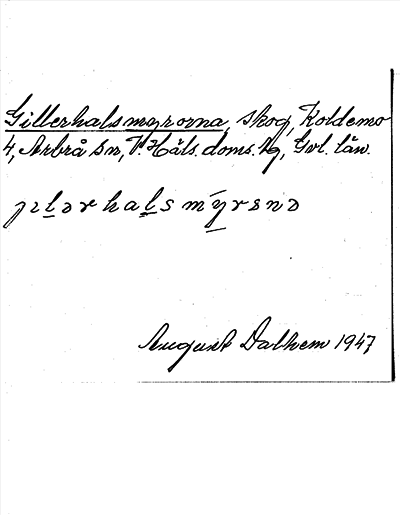 Gillerhalsmyrorna, skog, Koldemo
4, Arbrå sn, V. Häls. doms. hg, Gvl. län.
ȷılərhalsmy̆rənə
August Dalhem 1947